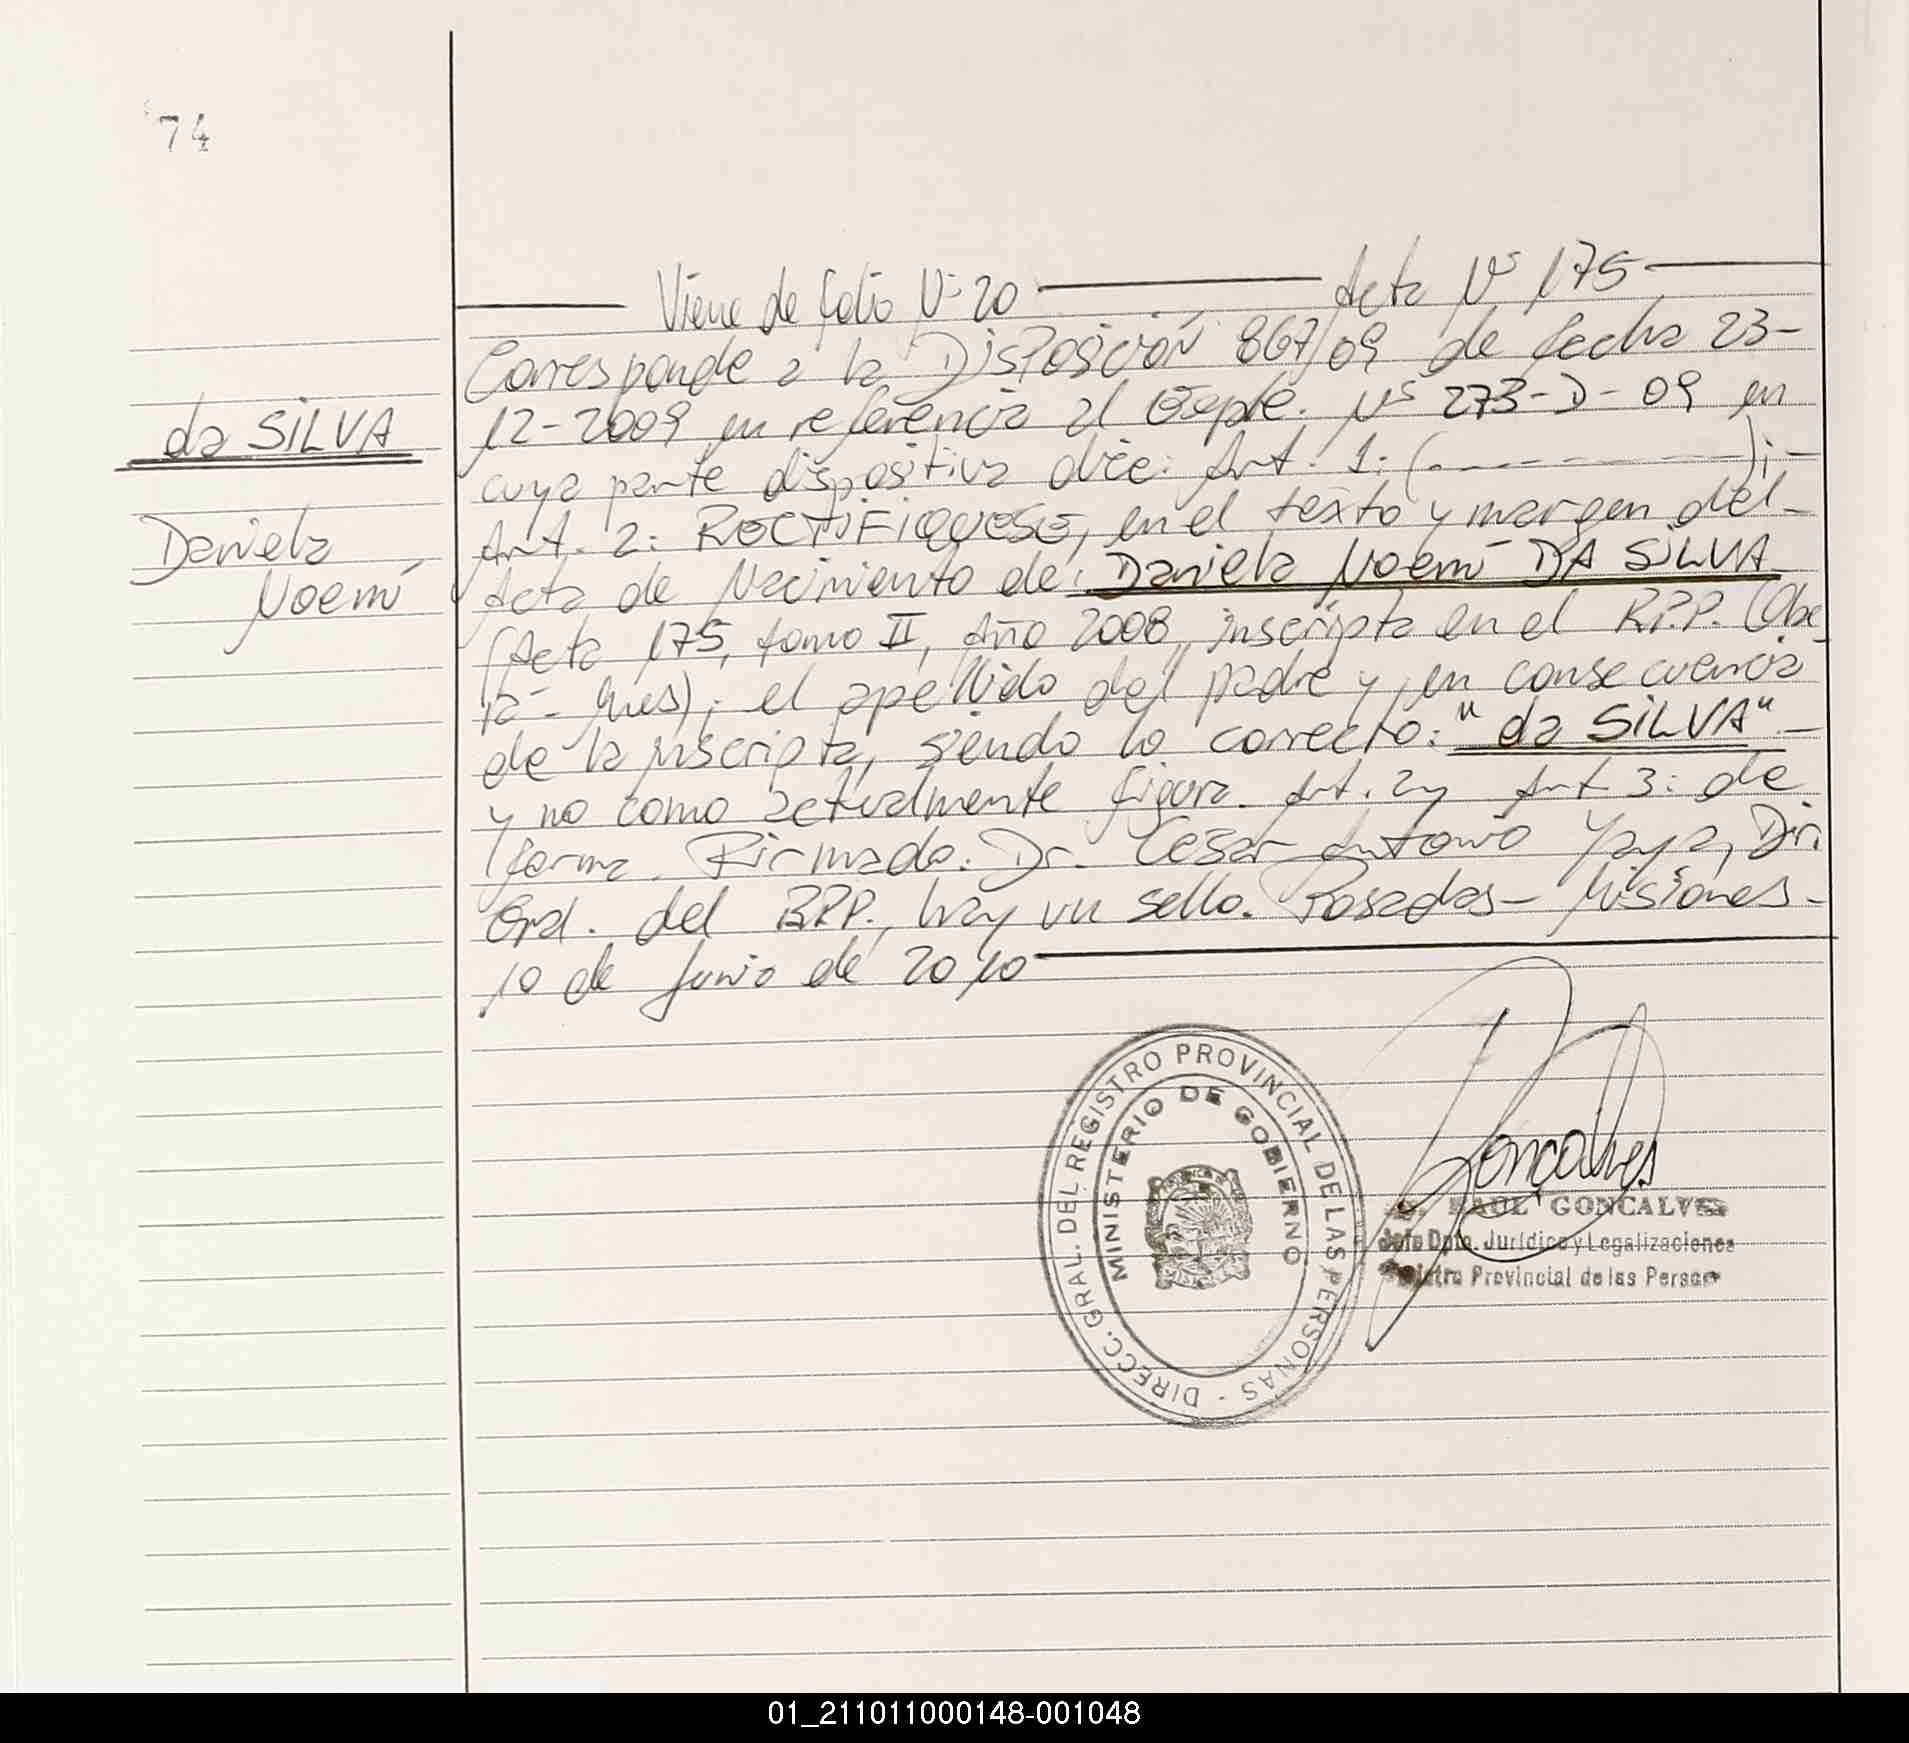 74
Viene de folio Nº 20 Acta Nº 175
Corresponde a la DISPOSICIÓN 867/09 de fecha 23-
12-2009 en referencia al Expte. Nº 273-D-09 en
cuya parte dispositiva dice: Art. 1: (- - - - - - - -);-
Art. 2: RECTIFIQUESE, en el texto y margen del-
Acta de Nacimiento de: Daniela Noemí DA SILVA
(Acta 175, tomo II, Año 2008, inscripta en el R.P.P. Obe-
rá- Mnes); el apellido del padre y, en consecuencia
de la inscripta, siendo lo correcto: "da SILVA"-
y no como actualmente figura. Art. 2 y Art 3: de
forma. Firmado. Dr. César Antonio Yaya, Dir.
Gral. del RPP., hay un sello. Posadas- Misiones-
10 de Junio de 2010
da SILVA
Daniela
Noemí
DIRECC. GRAL. DEL REGISTRO PROVINCIAL DE LAS PERSONAS -
MINISTERIO DE GOBIERNO
Goncalves
RAUL GONCALVES
Jefe Dpto. Jurídico y Legalizaciones
Registro Provincial de las Personas
01_211011000148-001048